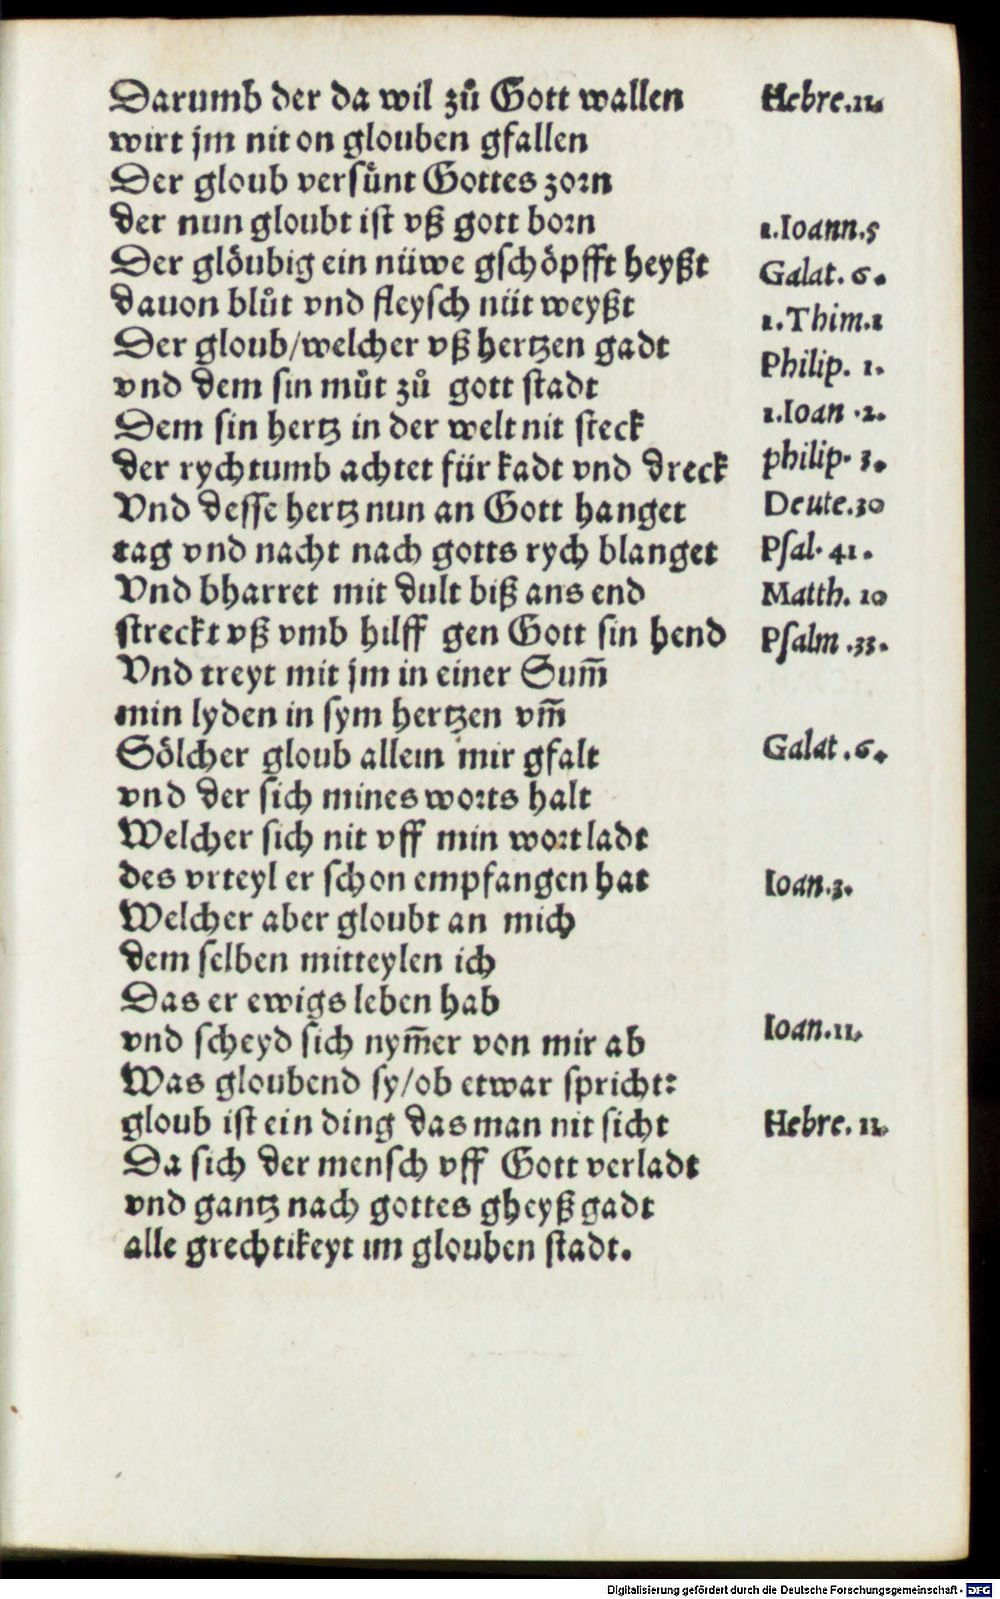 Darumb der da wil zů Gott wallen Hebre.11.
wirt jm nit on glouben gfallen
Der gloub versu̍nt Gottes zorn
der nun gloubt ist vß gott born 1.Ioann.5
Der glo̍ubig ein nüwe gscho̍pfft heyßt Galat. 6.
dauon blůt vnd fleysch nüt weyßt 1.Thim.1
Der gloub/welcher vß hertzen gadt Philip. 1.
vnd dem sin můt zů gott stadt
Dem sin hertz in der welt nit steck 1.Ioan .2.
der rychtumb achtet für kadt vnd dreck philip. 3.
Vnd desse hertz nun an Gott hanget Deute.30
tag vnd nacht nach gotts rych blanget Psal. 41.
Vnd bharret mit dult biß ans end Matth. 10
streckt vß vmb hilff gen Gott sin hend Psalm .33.
Vnd treyt mit jm in einer Sum̄
min lyden in sym hertzen vm̄
Sölcher gloub allein mir gfalt Galat .6.
vnd der sich mines worts halt
Welcher sich nit vff min wort ladt
des vrteyl er schon empfangen hat Ioan.3.
Welcher aber gloubt an mich
dem selben mitteylen ich
Das er ewigs leben hab
vnd scheyd sich nym̄er von mir ab Ioan.11.
Was gloubend sy/ob etwar spricht:
gloub ist ein ding das man nit sicht Hebre. 11.
Da sich der mensch vff Gott verladt
vnd gantz nach gottes gheyß gadt
alle grechtikeyt im glouben stadt.
Digitalisierung gefördert durch die Deutsche Forschungsgemeinschaft - DFG